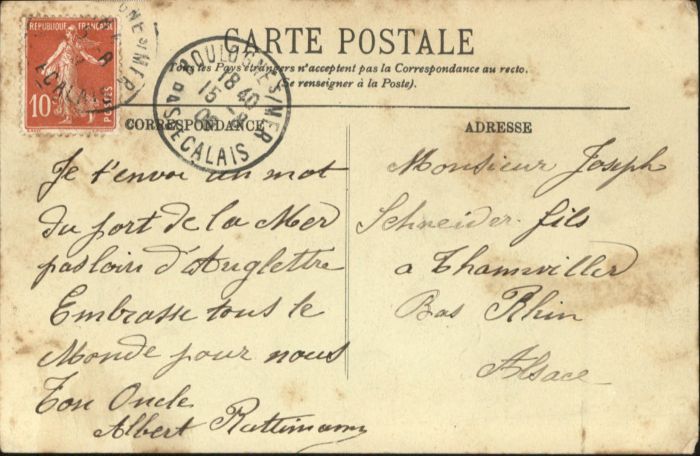 RÉPUBLIQUE FRANÇAISE
10 POSTES
BOULOGNE S/MER
18 40
15 -8
PAS DE CALAIS
CARTE POSTALE
Tous les Pays étrangers n'acceptent pas la Correspondance au recto.
(Se renseigner à la Poste).
CORRESPONDANCE
Je t'envoi un mot
du port de la Mer
pas loin d'Anglettre
Embrasse tous le
Monde pour nous
Ton Oncle
Albert Ruttimann
ADRESSE
Monsieur Joseph
Schneider fils
a Thanwiller
Bas Rhin
Alsace